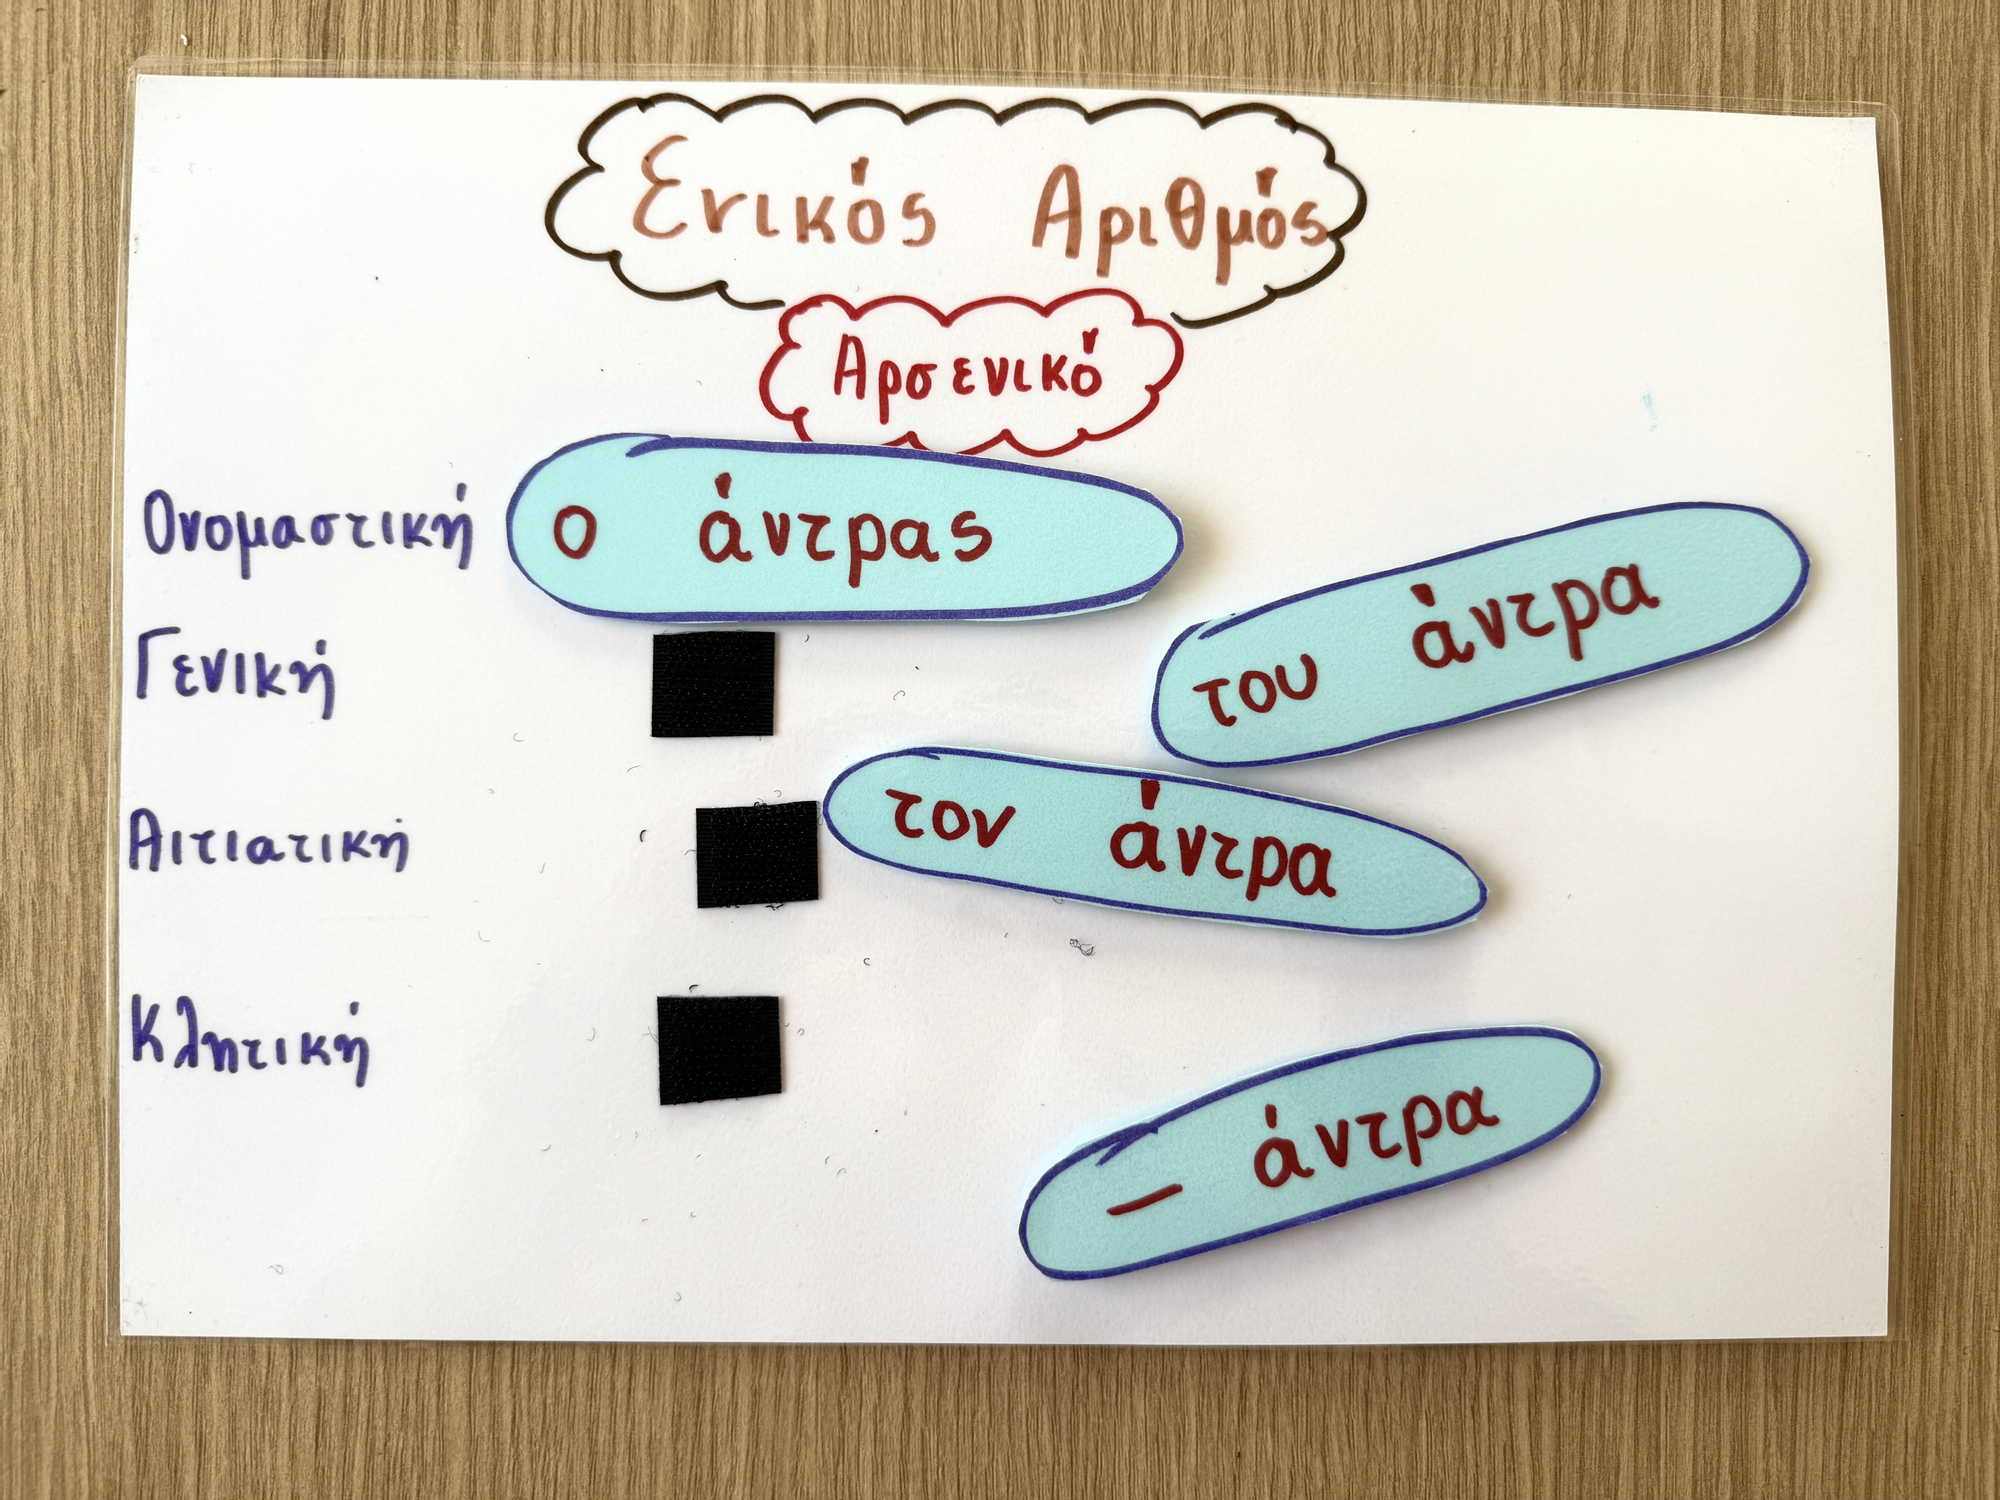 Ενικός Αριθμός
Αρσενικό
Ονομαστική ο άντρας
Γενική του άντρα
Αιτιατική τον άντρα
Κλητική — άντρα